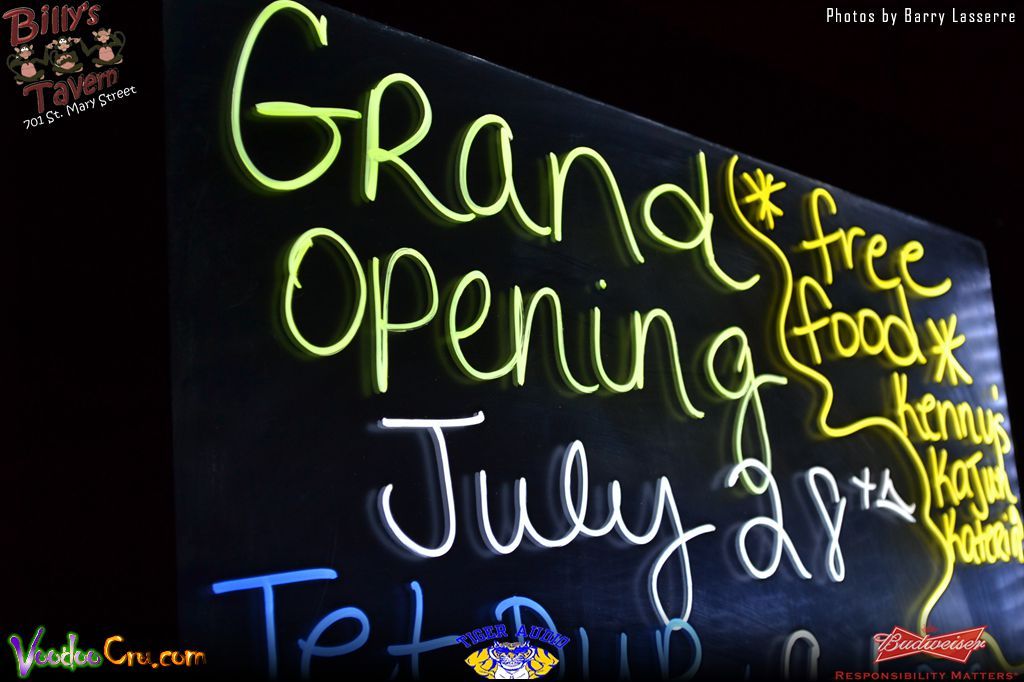 Billy's
Tavern
701 St. Mary Street
Photos by Barry Lasserre
Grand
Opening
July 28th
* free
food *
Kenny's
Kajun
VoodooCru.com
TIGER AUDIO
Budweiser
RESPONSIBILITY MATTERS®